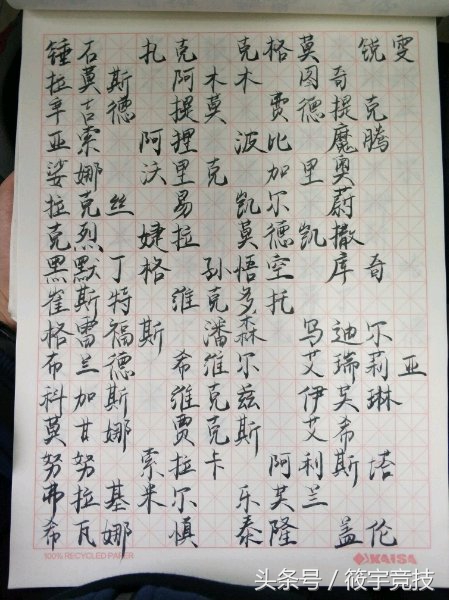 锤石 扎克 克格莫 锐雯
拉莫斯 阿木木 图奇
辛吉德 提莫 费德提克
亚索 阿狸 波比 魔腾
娑娜 沃里克 加里奥
拉克丝 易 凯尔 蔚
克烈 婕拉 莫德凯撒
黑默丁格 孙悟空 库奇
崔斯特 维克多托
格雷福斯 潘森 乌迪尔
布兰德 希维尔 艾瑞莉亚
科加斯 维克兹 伊芙琳
莫甘娜 贾克斯 艾希
努努 索拉卡 阿利斯塔
弗拉基米尔 乐芙兰
希瓦娜 慎 泰隆 盖伦
100% RECYCLED PAPER KAISA
头条号 / 筱宇竞技